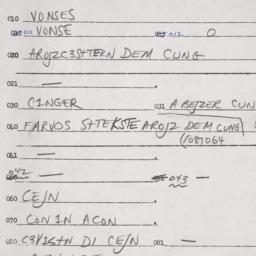 010 VONSES
011 VONSE 012 0
020 AROJ2C3STTERN DEM CUNG
021 —
030 C1NGER 031 A BEJZER CUN
040 FARVOS STTEKSTE AROJ2 DEM CUNG
1108%064
041 —
042 — 043 —
060 CE/N
070 CON IN ACON
080 C3V1STN DI CE/N 081 —